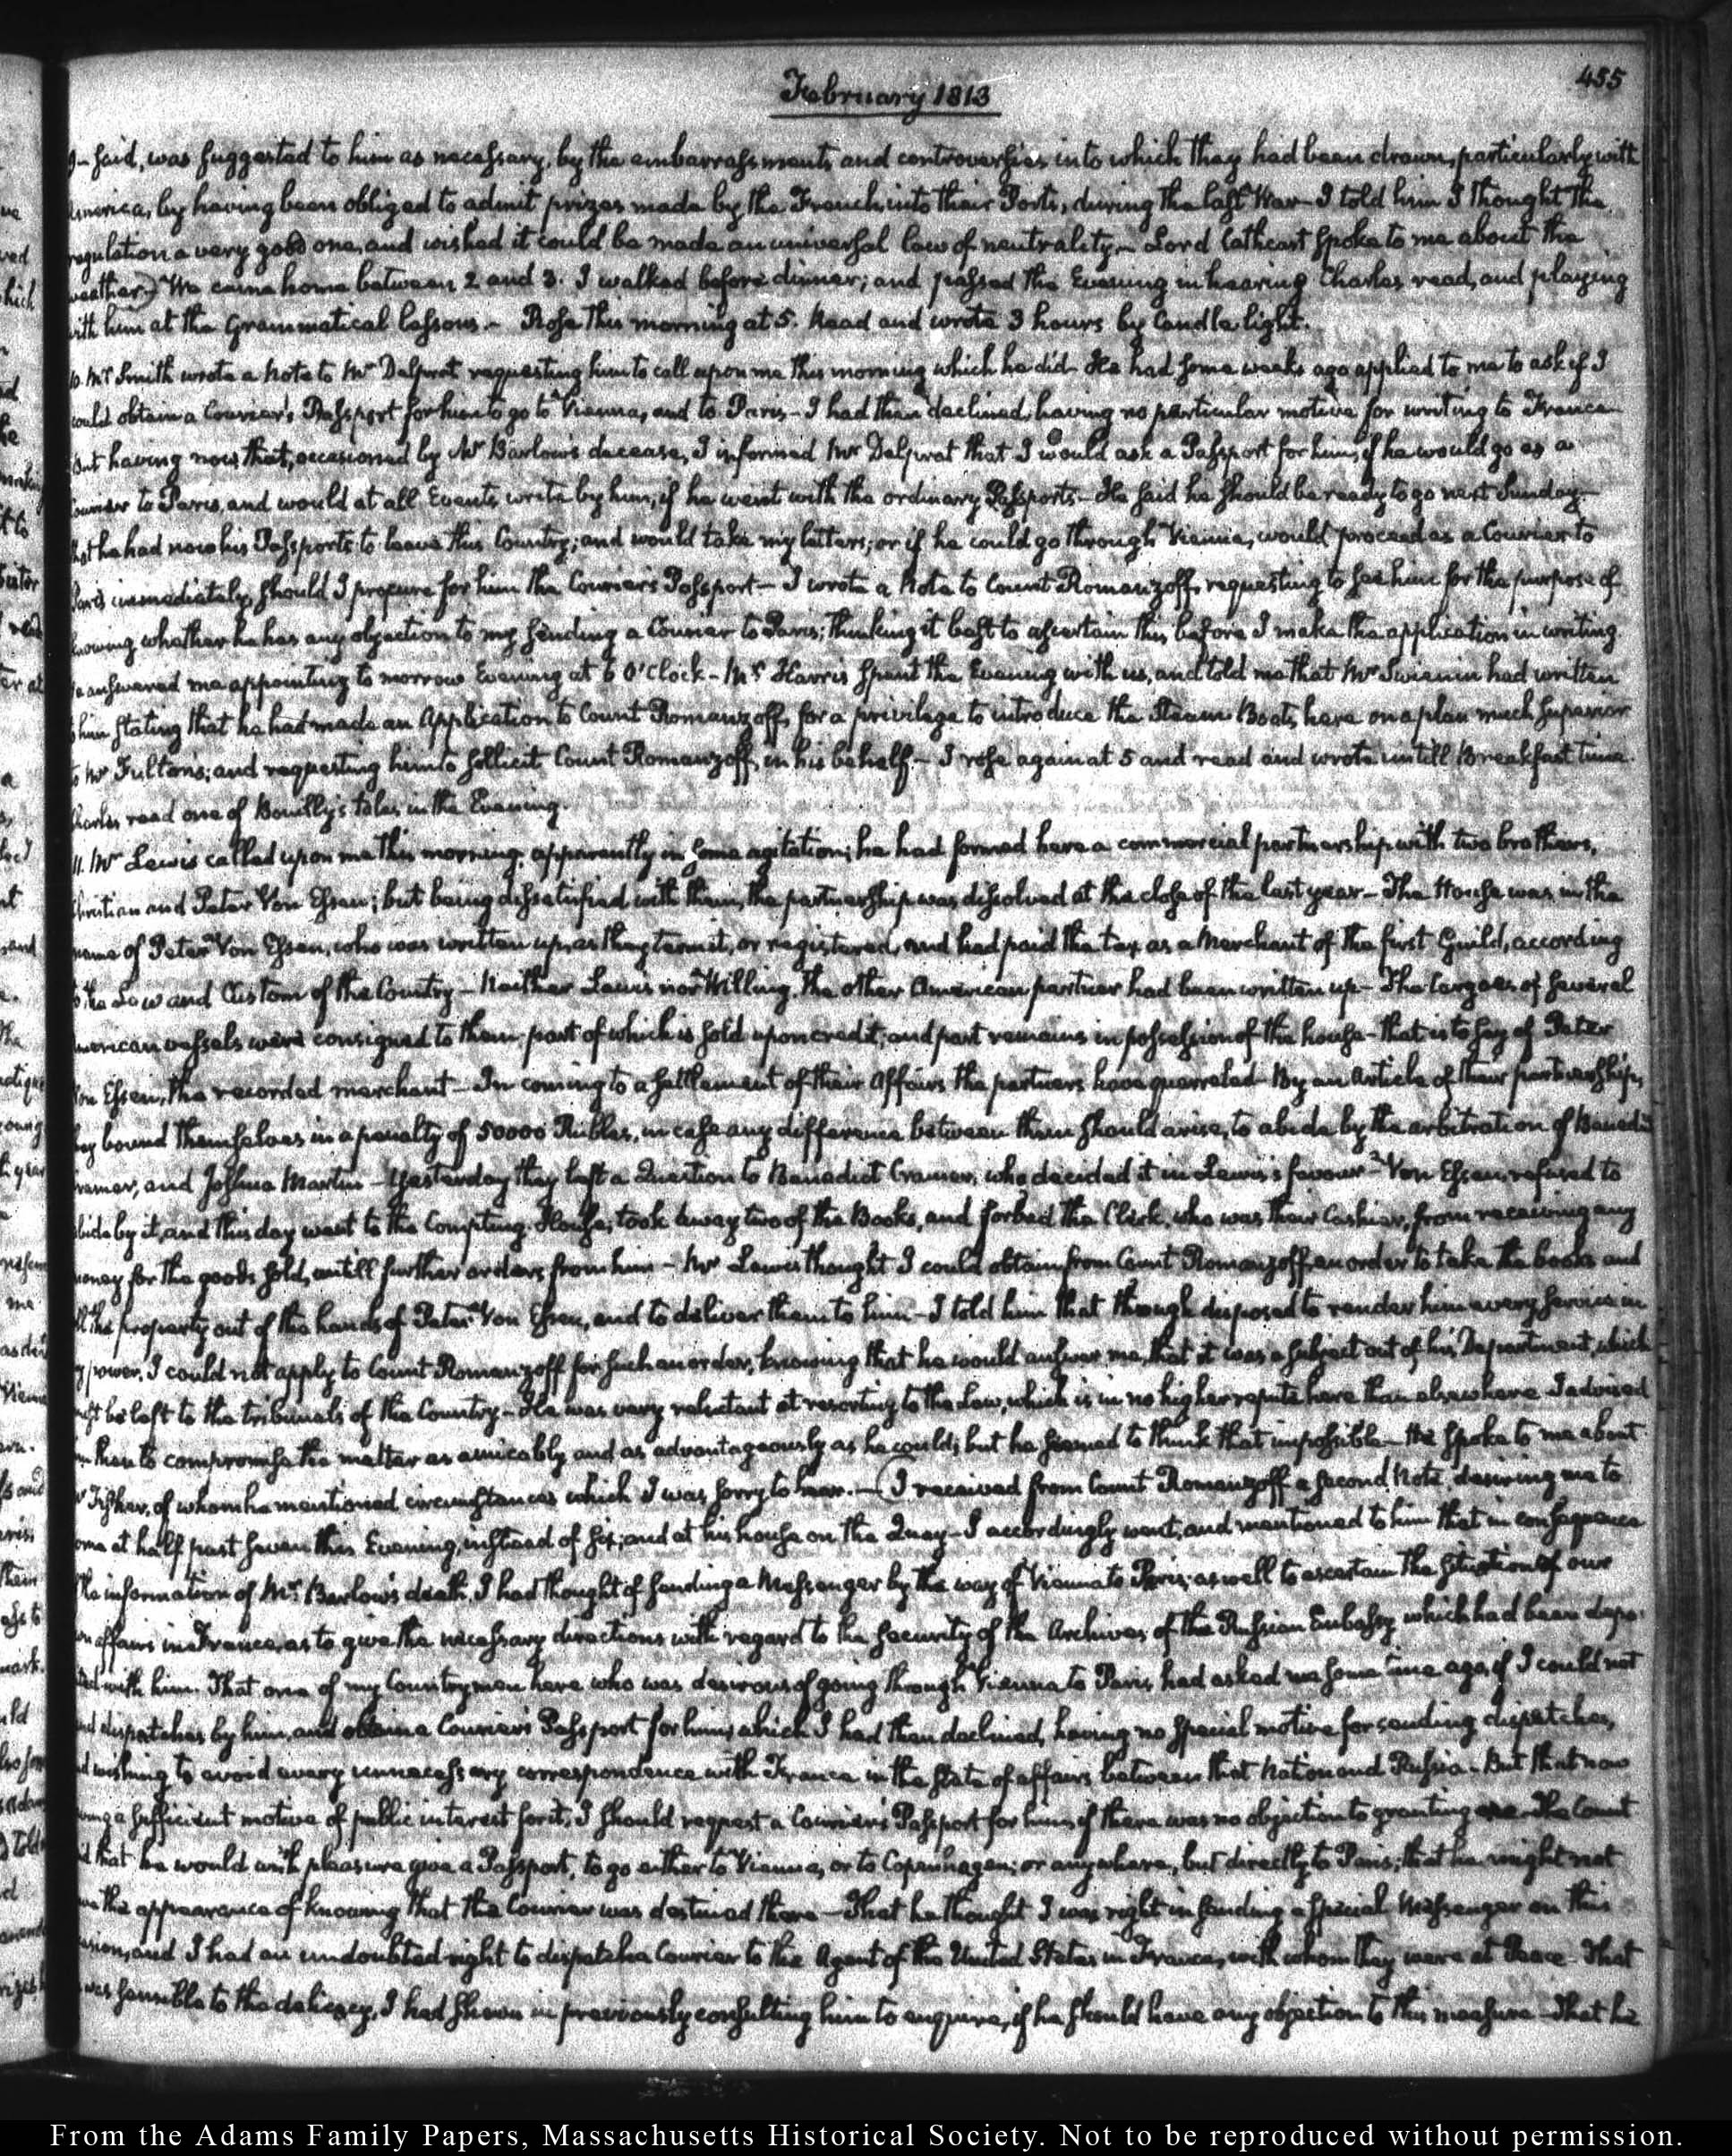 455
February 1813
said, was suggested to him as necessary, by the embarrassments and controversies into which they had been drawn, particularly with
America, by having been obliged to admit prizes made by the French into their Ports, during the last War — I told him I thought the
regulation a very good one, and wished it could be made an universal law of neutrality — Lord Cathcart spoke to me about the
weather.) We came home between 2 and 3. I walked before dinner; and passed the Evening in hearing Charles read, and playing
with him at the Grammatical lessons. — Rose this morning at 5. Read and wrote 3 hours by Candle light.
10. Mr Smith wrote a Note to Mr Delprat requesting him to call upon me this morning which he did — He had some weeks ago applied to me to ask if I
could obtain a Courier's Passport for him to go to Vienna, and to Paris — I had then declined, having no particular motive for writing to France —
But having now that, occasioned by Mr Barlow's decease, I informed Mr Delprat that I would ask a Passport for him, if he would go as a
Courier to Paris, and would at all Events write by him, if he went with the ordinary Passports — He said he should be ready to go next Sunday —
that he had now his Passports to leave this Country; and would take my letters; or if he could go through Vienna, would proceed as a Courier to
Paris immediately, should I procure for him the Courier's Passport — I wrote a Note to Count Romanzoff, requesting to see him for the purpose of
knowing whether he has any objection to my sending a Courier to Paris; thinking it best to ascertain this, before I make the application in writing
he answered me appointing to morrow Evening at 6 O'Clock — Mr Harris spent the Evening with us, and told me that Mr Swienin had written
him stating that he had made an Application to Count Romanzoff, for a privilege to introduce the Steam Boats here on a plan much Superior
to Mr Fultons; and requesting him to sollicit Count Romanzoff, in his behalf. — I rose again at 5 and read and wrote untill Breakfast time.
Charles read one of Bouilly's tales in the Evening.
11. Mr Lewis called upon me this morning, apparently in some agitation; he had formed here a commercial partnership with two brothers,
Christian and Peter Von Essen; but being dissatisfied with them, the partnership was dissolved at the close of the last year — The House was in the
name of Peter Von Essen, who was written up, as they term it, or registered, and had paid the tax as a Merchant of the first Guild, according
to the Law and Custom of the Country — Neither Lewis nor Willing, the other American partner had been written up — The Cargoes of several
American vessels were consigned to them, part of which is sold upon credit, and part remains in possession of the house — that is to say of Peter
Von Essen, the recorded merchant — In coming to a settlement of their Affairs the partners have quarreled — By an Article of their partnership,
they bound themselves in a penalty of 50000 Rubles, in case any difference between them should arise, to abide by the arbitration of Benedict
Cramer, and Joshua Martin — Yesterday they left a Question to Benedict Cramer, who decided it in Lewis's favour — Von Essen, refused to
abide by it, and this day went to the Compting-House, took away two of the Books, and forbad the Clerk, who was their Cashier, from receiving any
money for the goods sold, untill further orders from him — Mr Lewis thought I could obtain from Count Romanzoff, an order to take the books and
all the property out of the hands of Peter Von Essen, and to deliver them to him — I told him that though disposed to render him every service in
my power, I could not apply to Count Romanzoff for such an order, knowing that he would answer me, that it was a subject out of his Department, which
must be left to the tribunals of the Country — He was very reluctant at resorting to the Law, which is in no higher repute here than elsewhere. I advised
him then to compromise the matter as amicably and as advantageously as he could; but he seemed to think that impossible — He spoke to me about
Mr Fisher, of whom he mentioned circumstances which I was sorry to hear. — (I received from Count Romanzoff a second Note, desiring me to
come at half past seven this Evening, instead of six; and at his house on the Quay — I accordingly went, and mentioned to him that in consequence
of the information of Mr Barlow's death, I had thought of sending a Messenger by the way of Vienna to Paris; as well to ascertain the situation of our
own affairs in France, as to give the necessary directions with regard to the security of the Archives of the Russian Embassy which had been depo-
sited with him. That one of my Countrymen here who was desirous of going through Vienna to Paris, had asked me some time ago, if I could not
send dispatches by him, and obtain a Courier's Passport for him, which I had then declined, having no special motive for sending dispatches,
and wishing to avoid every unnecessary correspondence with France in the state of affairs between that Nation and Russia — But that now
having a sufficient motive of public interest for it, I should request a Courier's Passport for him, if there was no objection to granting one — The Count
said that he would with pleasure give a Passport, to go either to Vienna, or to Copenhagen; or any where, but directly to Paris; that he might not
have the appearance of knowing that the Courier was destined there — That he thought I was right in sending a special Messenger on this
occasion, and I had an undoubted right to dispatch a Courier to the Agent of the United States in France, with whom they were at Peace — That
he was sensible to the delicacy, I had shewn in previously consulting him to enquire, if he should have any objection to this measure — That he
From the Adams Family Papers, Massachusetts Historical Society. Not to be reproduced without permission.